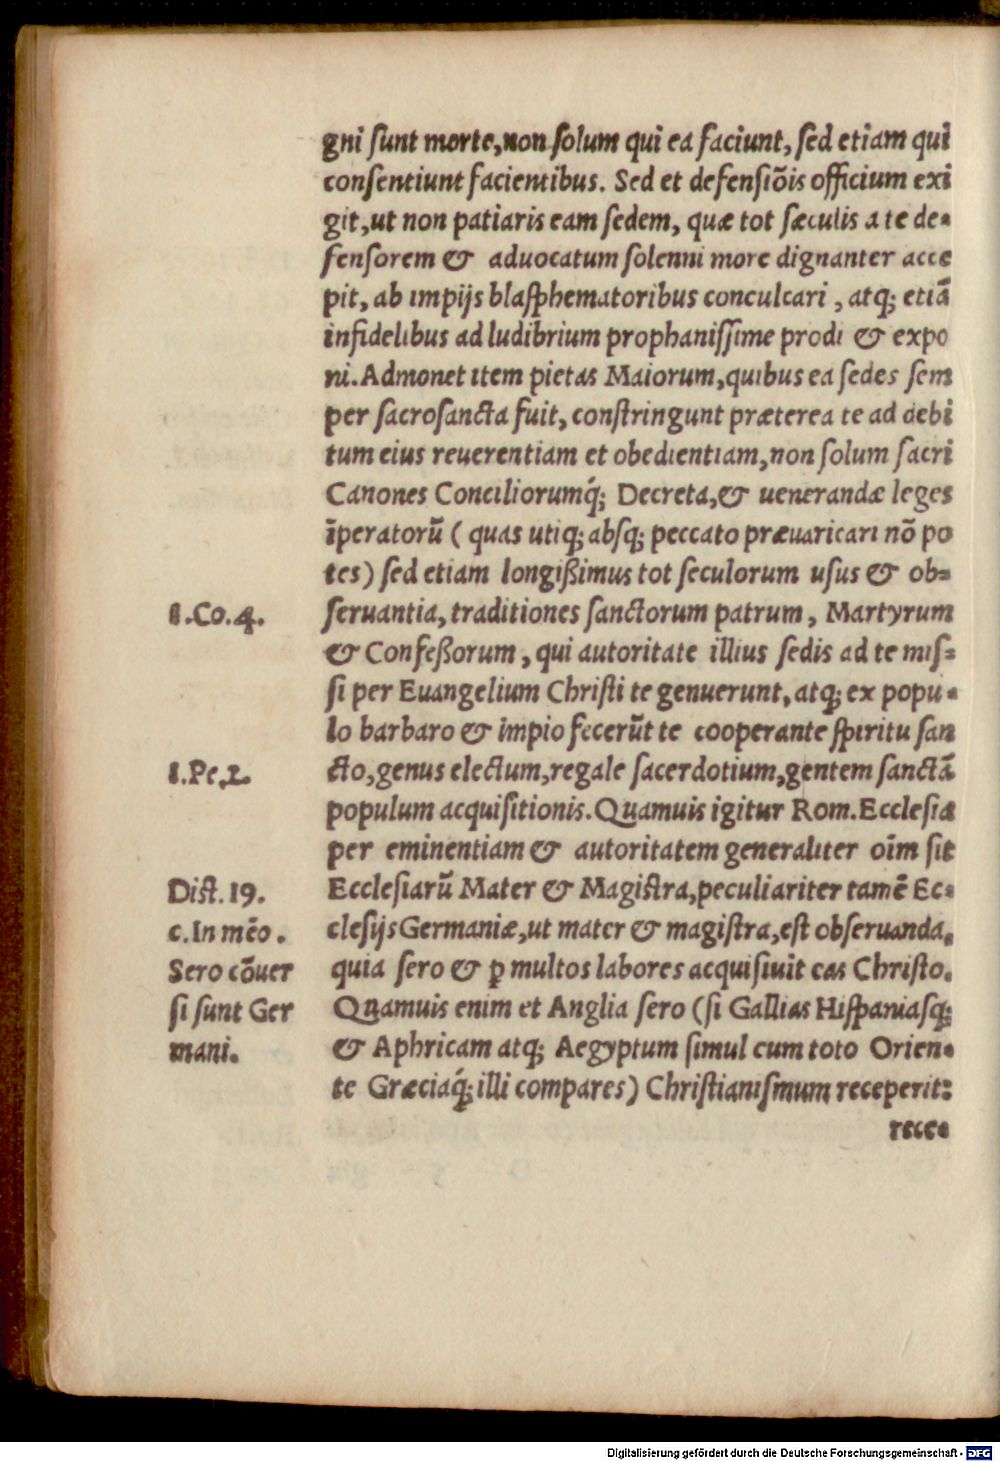 gni sunt morte, non solum qui ea faciunt, sed etiam qui
consentiunt facientibus. Sed et defensiōis officium exi
git, ut non patiaris eam sedem, quæ tot sæculis a te de-
fensorem & aduocatum solenni more dignanter acce
pit, ab impijs blasphematoribus conculcari, atq; etiā
infidelibus ad ludibrium prophanissime prodi & expo
ni. Admonet item pietas Maiorum, quibus ea sedes sem
per sacrosancta fuit, constringunt præterea te ad debi
tum eius reuerentiam et obedientiam, non solum sacri
Canones Conciliorumq́; Decreta, & uenerandæ leges
īperatorū ( quas utiq; absq; peccato præuaricari nō po
tes) sed etiam longißimus tot seculorum usus & ob-
1.Co.4.
seruantia, traditiones sanctorum patrum, Martyrum
& Confeßorum, qui autoritate illius sedis ad te mis-
si per Euangelium Christi te genuerunt, atq; ex popu-
lo barbaro & impio fecerūt te cooperante spiritu san
1.Pe.2.
cto, genus electum, regale sacerdotium, gentem sanctā
populum acquisitionis. Quamuis igitur Rom. Ecclesia
per eminentiam & autoritatem generaliter oīm sit
Dist. 19.
Ecclesiarū Mater & Magistra, peculiariter tamē Ec-
c. In mēo.
clesijs Germaniæ, ut mater & magistra, est obseruanda,
Sero cōuer
quia sero & ꝑ multos labores acquisiuit eas Christo.
si sunt Ger
Quamuis enim et Anglia sero (si Gallias Hispaniasq;
mani.
& Aphricam atq; Aegyptum simul cum toto Orien-
te Græciaq́; illi compares) Christianismum receperit:
rece-
Digitalisierung gefördert durch die Deutsche Forschungsgemeinschaft - DFG